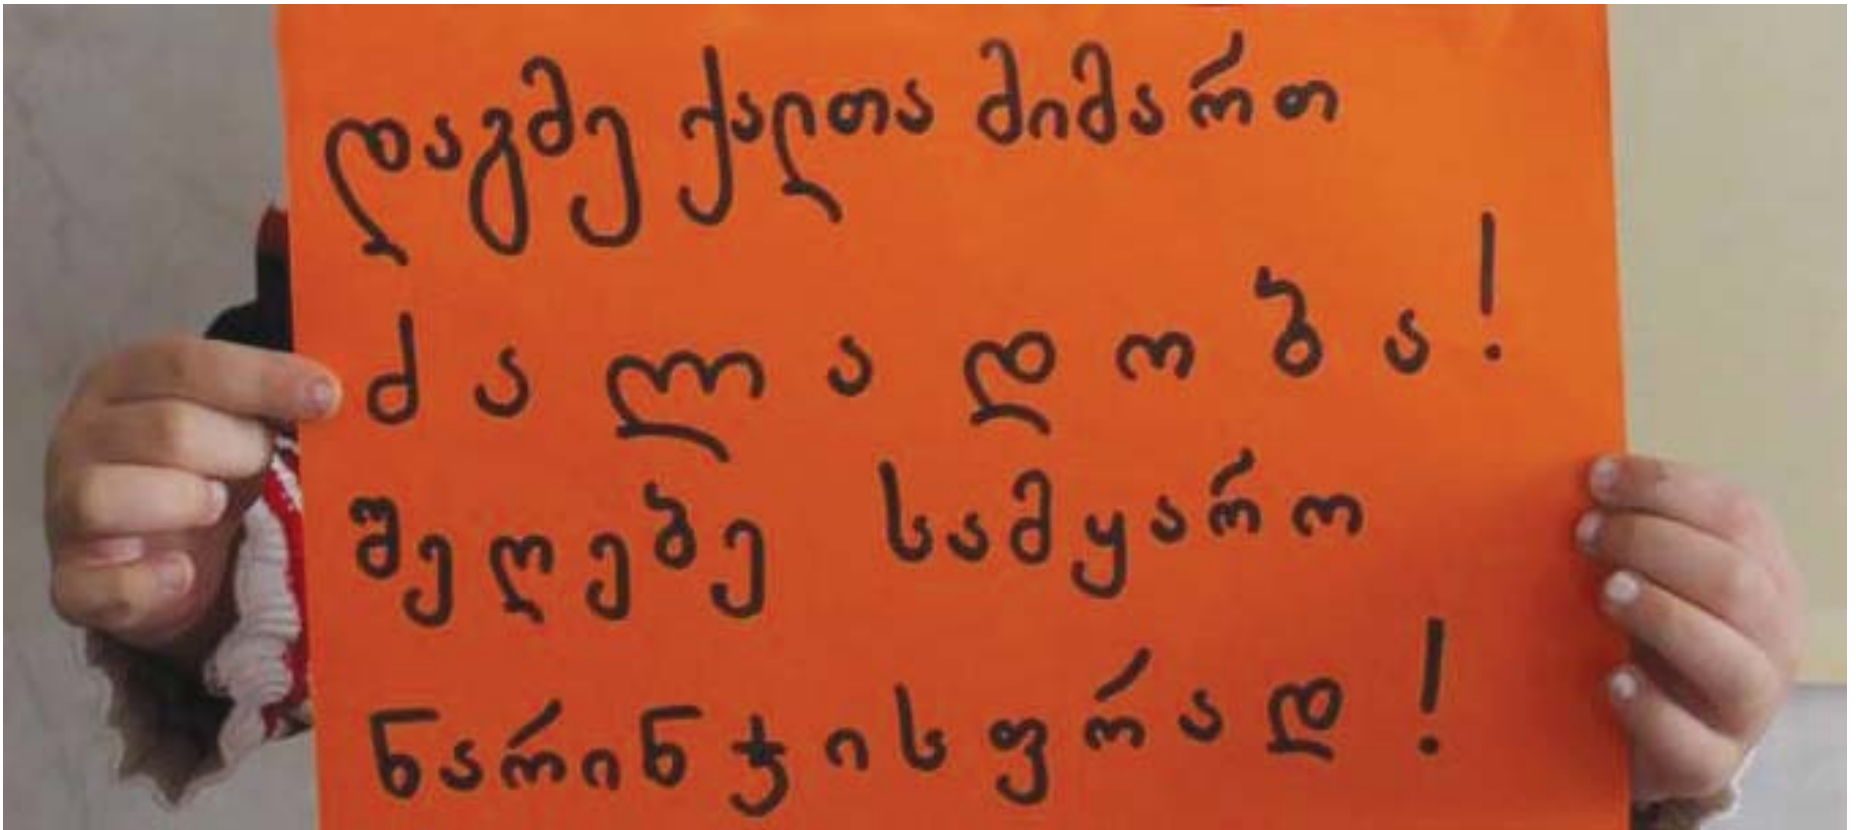 დაგმე ქალთა მიმართ
ძალადობა!
შეღებე სამყარო
ნარინჯისფრად!